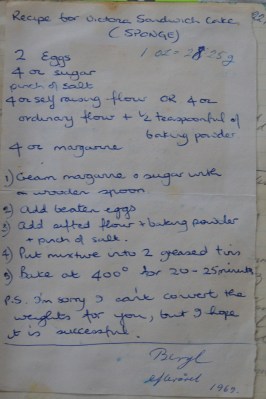 Recipe for Victoria Sandwich Cake
(SPONGE)
1 oz = 28 25g
2 Eggs
4 oz sugar
pinch of salt
4 oz self raising flour OR 4 oz
ordinary flour + ½ teaspoonful of
baking powder
4 oz margarine
1) Cream margarine & sugar with
a wooden spoon.
2) Add beaten eggs
3) Add sifted flour & baking powder
+ pinch of salt.
4) Put mixture into 2 greased tins
5) Bake at 400° for 20-25 minutes
P.S. I'm sorry I can't convert the
weights for you, but I hope
it is successful.
Beryl
1969.